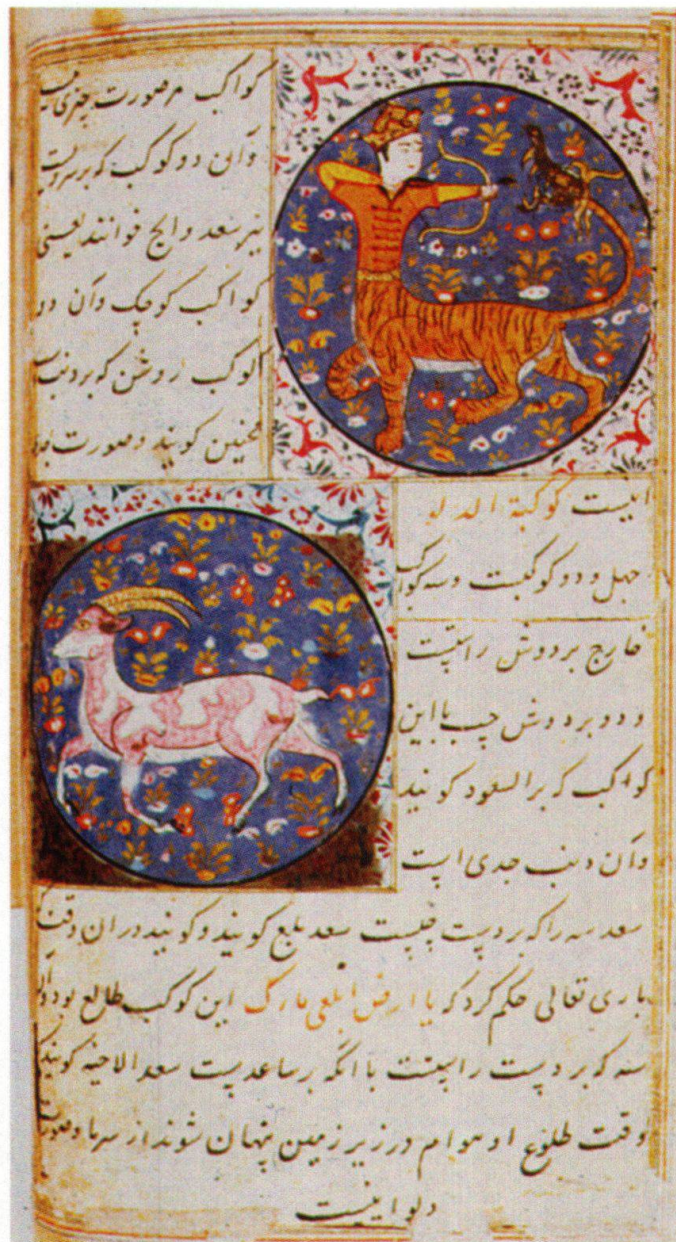 کواکب مرصورت جدی
وآن دو کوکب که بر سر
نیر سعد ذابح خوانند یعنی
کواکب کوچک وآن دو
کوکب روشن که بر ذنب
محبین کویند وصورت
اینست کوکبة الدلو
چهل و دو کوکبست وسه کوکب
خارج بر دوش راستست
و دو بر دوش چپ با این
کواکب که بر السعود کویند
وآن ذنب جدی است
سعد سه را که بر دست چپست سعد بلع کویند وکویند دران وقت
باری تعالی حکم کرد که یا ارض ابلعی مارک این کوکب طالع بود
سه که بر دست راستست با انکه بر ساعدست سعد الاخبیه کویند
وقت طلوع او هوام در زیر زمین پنهان شوند از سرما وصورت
دلو اینست